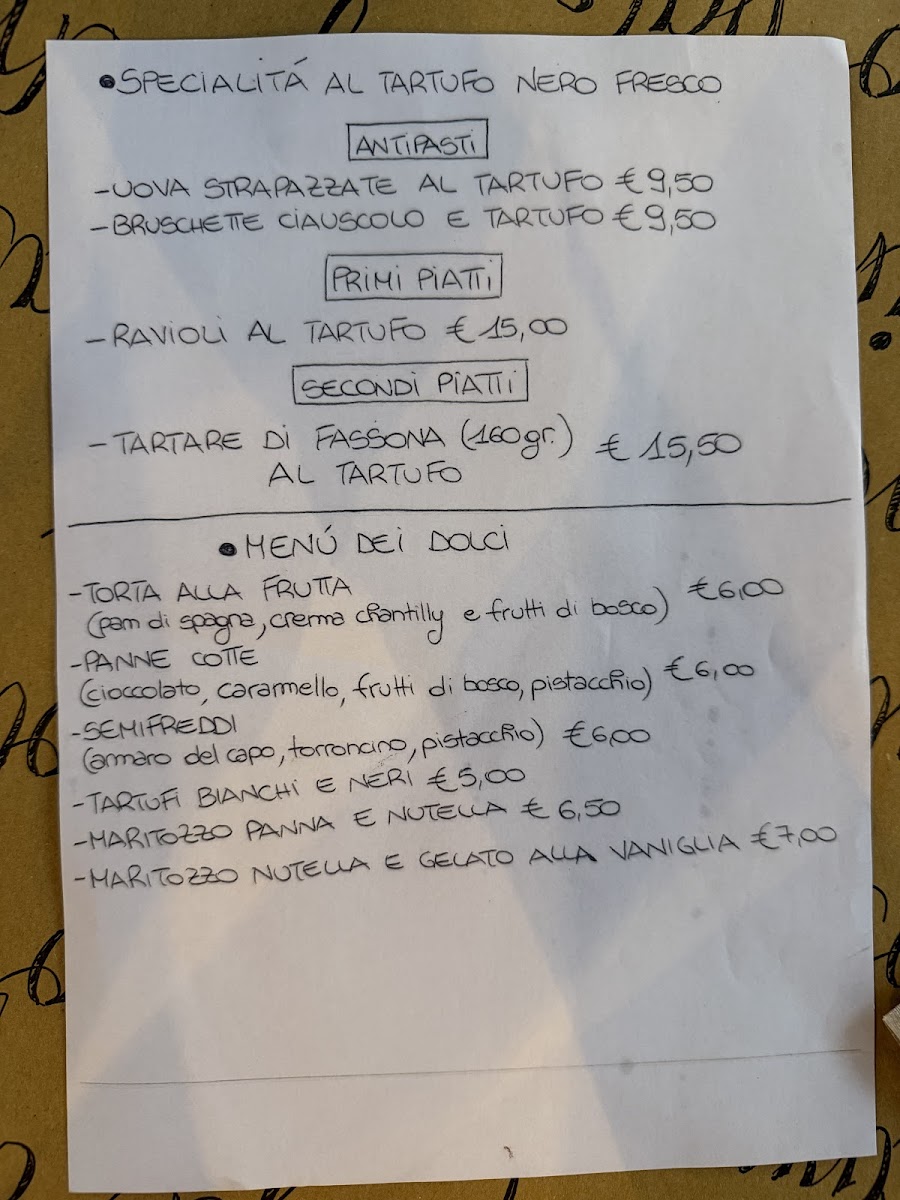 •SPECIALITÁ AL TARTUFO NERO FRESCO
ANTIPASTI
-UOVA STRAPAZZATE AL TARTUFO €9,50
-BRUSCHETTE CIAUSCOLO E TARTUFO €9,50
PRIMI PIATTI
-RAVIOLI AL TARTUFO €15,00
SECONDI PIATTI
-TARTARE DI FASSONA (160gr.) €15,50
AL TARTUFO
•MENÚ DEI DOLCI
-TORTA ALLA FRUTTA €6,00
(pam di spagna, crema chantilly e frutti di bosco)
-PANNE COTTE
(cioccolato, caramello, frutti di bosco, pistacchio) €6,00
-SEMIFREDDI
(amaro del capo, torroncino, pistacchio) €6,00
-TARTUFI BIANCHI E NERI €5,00
-MARITOZZO PANNA E NUTELLA €6,50
-MARITOZZO NUTELLA E GELATO ALLA VANIGLIA €7,00